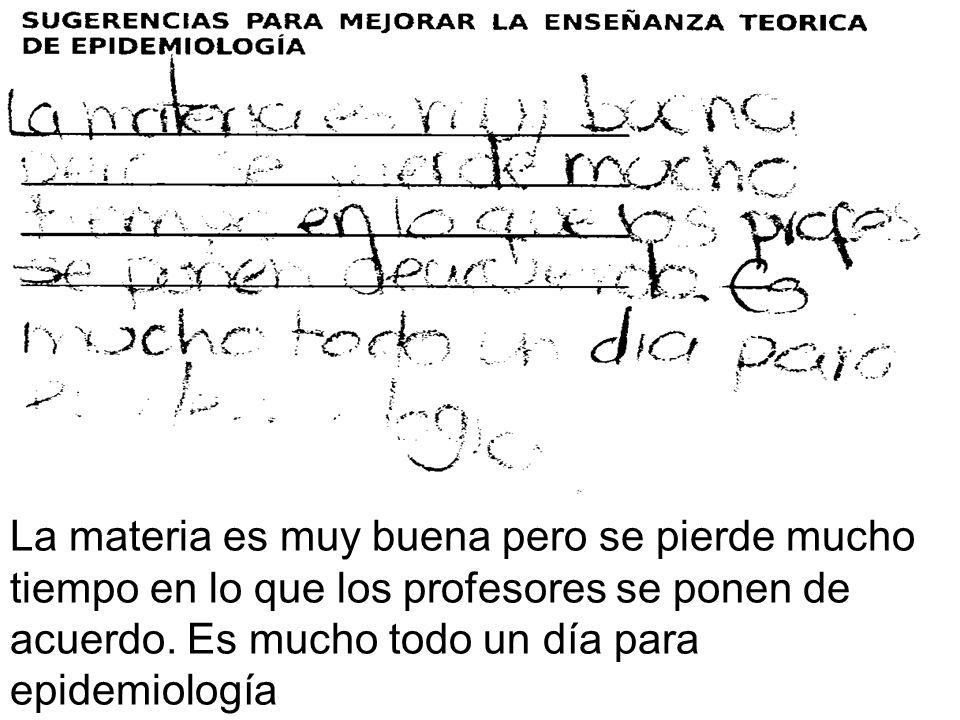 SUGERENCIAS PARA MEJORAR LA ENSEÑANZA TEORICA
DE EPIDEMIOLOGÍA
La materia es muy buena
pero se pierde mucho
tiempo en lo que los profes
se ponen deacuerdo. Es
mucho todo un dia para
La materia es muy buena pero se pierde mucho
tiempo en lo que los profesores se ponen de
acuerdo. Es mucho todo un día para
epidemiología